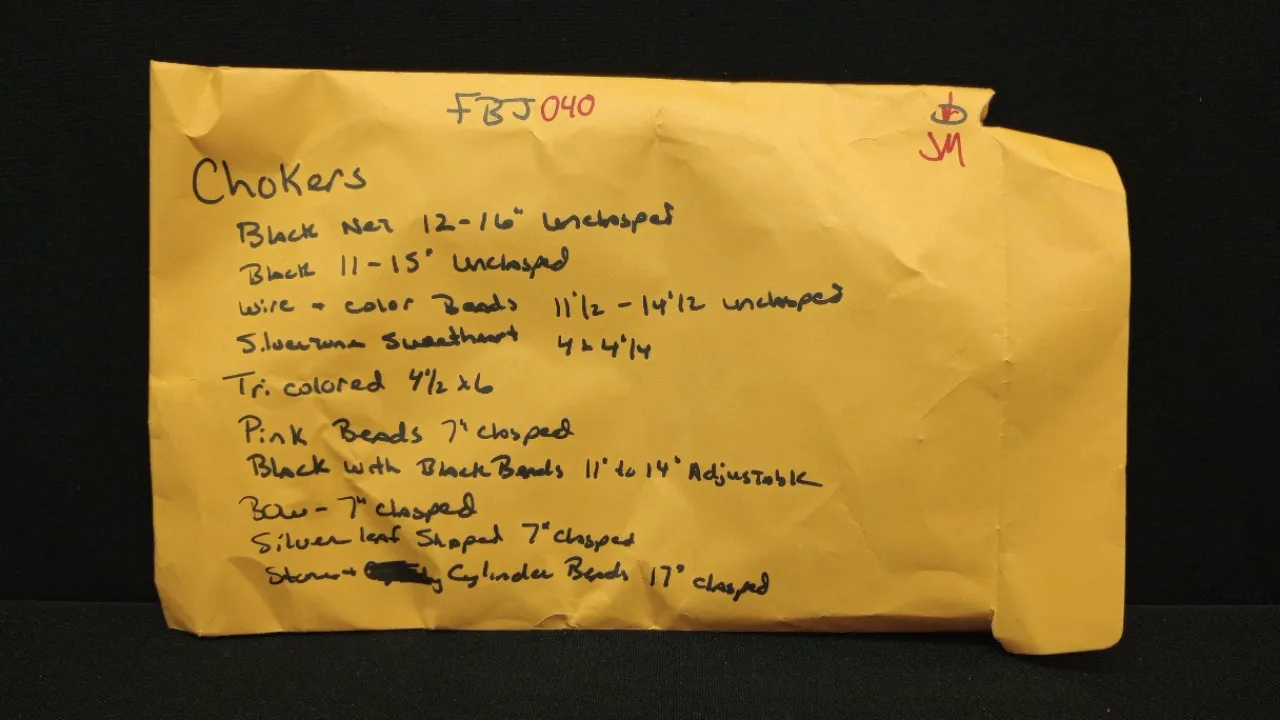 FBJ040
JM
Chokers
Black Net 12-16" unclasped
Black 11-15" unclasped
Wire + color Beads 11 1/2 - 14 1/2 unclasped
Silvertone Sweetheart 4 x 4 1/4
Tri colored 4 1/2 x 6
Pink Beads 7" clasped
Black with Black Beads 11" to 14" Adjustable
Bow - 7" clasped
Silver leaf Shaped 7" clasped
Stone + Cylinder Beads 17" clasped